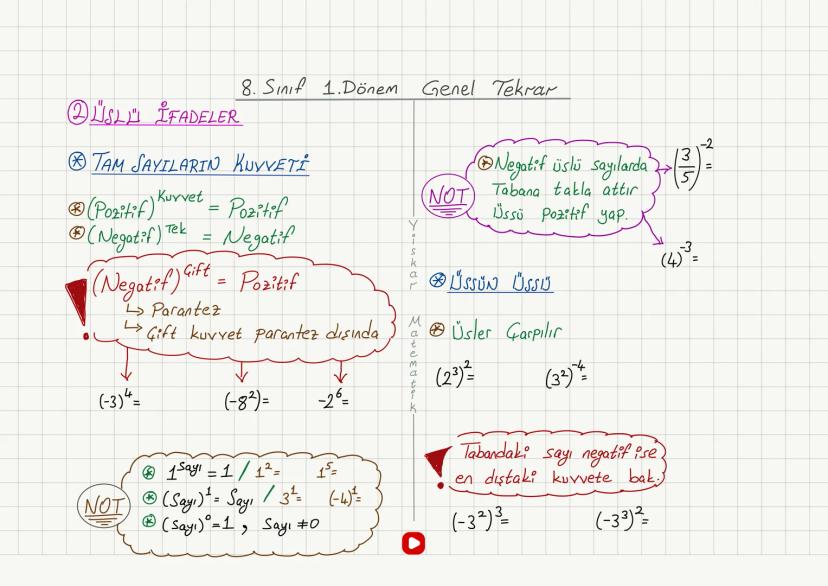 8. Sınıf 1.Dönem Genel Tekrar
② ÜSLÜ İFADELER
TAM SAYILARIN KUVVETİ
(Pozitif)^Kuvvet = Pozitif
(Negatif)^Tek = Negatif
(Negatif)^Çift = Pozitif
↳ Parantez
↳ Çift kuvvet parantez dışında
(-3)⁴=
(-8²)=
-2⁶=
NOT
1^Sayı = 1 / 1²= 1⁵=
(Sayı)¹= Sayı / 3¹= (-4)¹=
(Sayı)⁰=1 , Sayı ≠0
Yiskar Matematik
NOT
Negatif üslü sayılarda
Tabana takla attır
Üssü pozitif yap.
(3/5)⁻²=
(4)⁻³=
ÜSSÜN ÜSSÜ
Üsler Çarpılır
(2³)²=
(3²)⁻⁴=
Tabandaki sayı negatif ise
en dıştaki kuvvete bak.
(-3²)³=
(-3³)²=